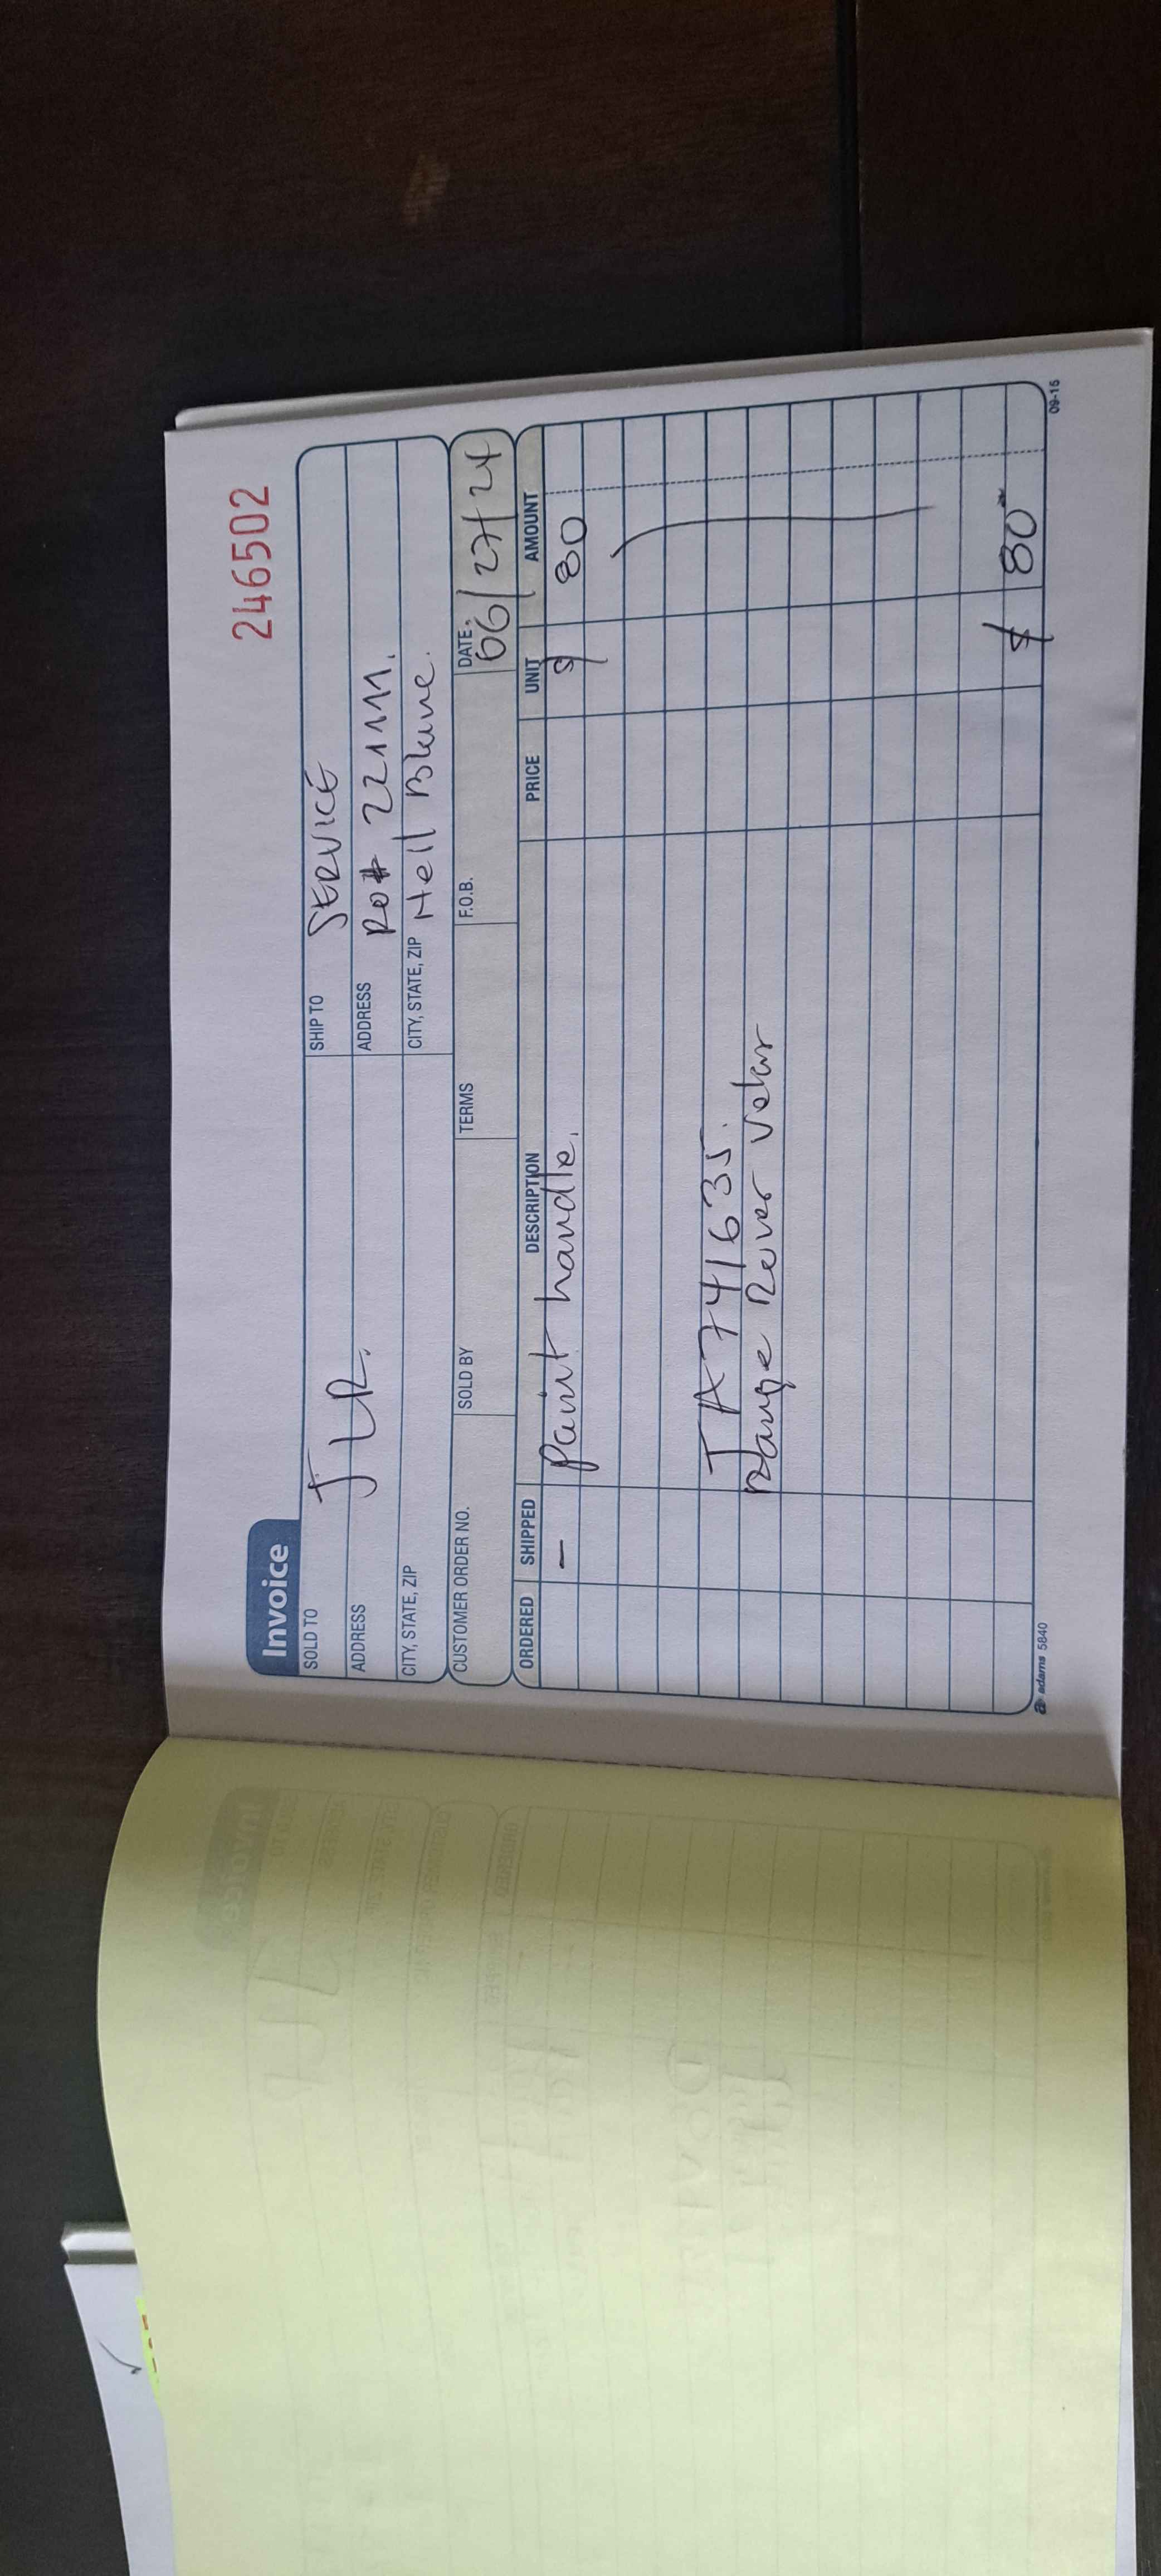 246502
Invoice
SOLD TO JLR. SHIP TO SERVICE
ADDRESS ADDRESS RO# 221111.
CITY, STATE, ZIP CITY, STATE, ZIP Hell Blume.
CUSTOMER ORDER NO. SOLD BY TERMS F.O.B. DATE 06/27/24
ORDERED SHIPPED DESCRIPTION PRICE UNIT AMOUNT
– Paint handle. $ 80
JA741635.
Range Rover Velar
$ 80
a adams 5840 09-15